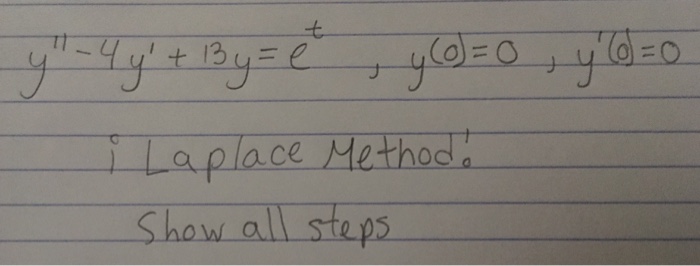 y'' - 4y' + 13y = e^t , y(0) = 0 , y'(0) = 0
¡ Laplace Method!
Show all steps